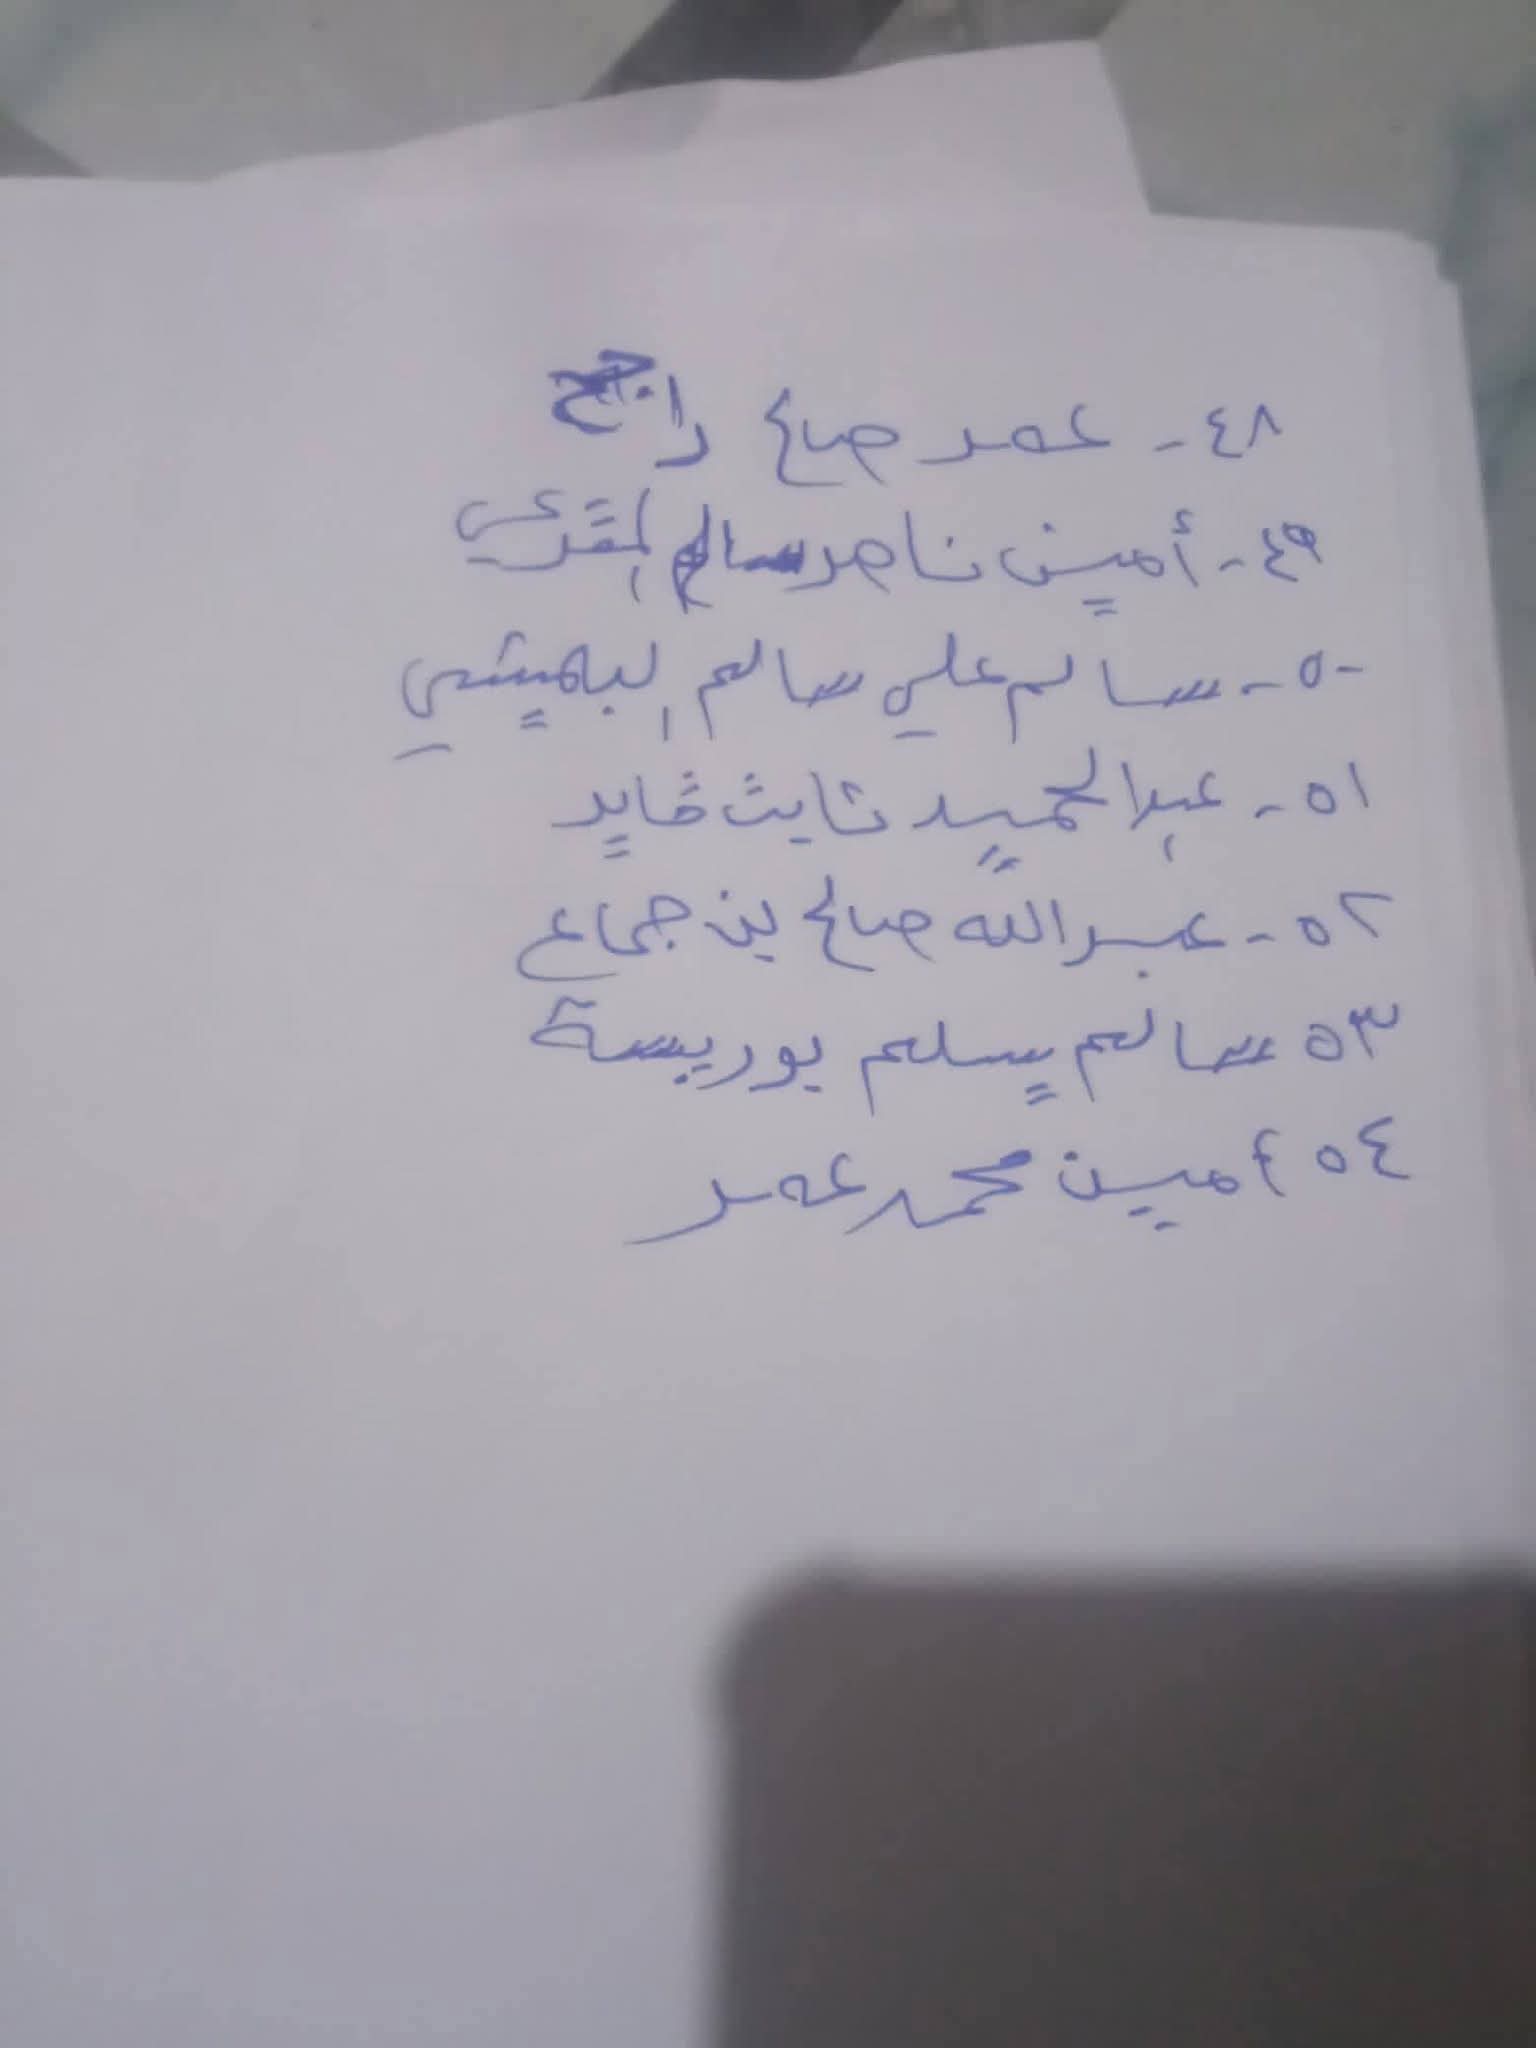 ٤٨- عمر صالح راجح
٤٩- أمين ناصر سالم
٥٠- سالم علي سالم البهيشي
٥١- عبدالحميد ثابت قايد
٥٢- عبدالله صالح بن جماع
٥٣ سالم يسلم بوريسة
٥٤ أمين محمد عمر